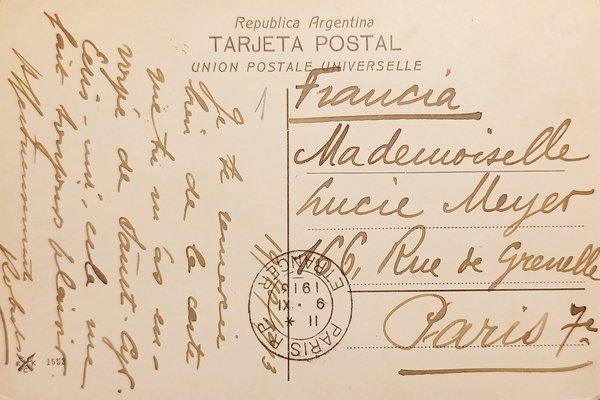 Republica Argentina
TARJETA POSTAL
UNION POSTALE UNIVERSELLE
1
Je te remercie
bien de la carte
que tu m'as en-
voyé de Saint-Cyr.
Ecris-moi, cela me
fait toujours plaisir
Affectueusement
Francia
Mademoiselle
Lucie Meyer
166, Rue de Grenelle
Paris 7e
PARIS R.P.
ETRANGER
11 *
9 · XI
1916
1553